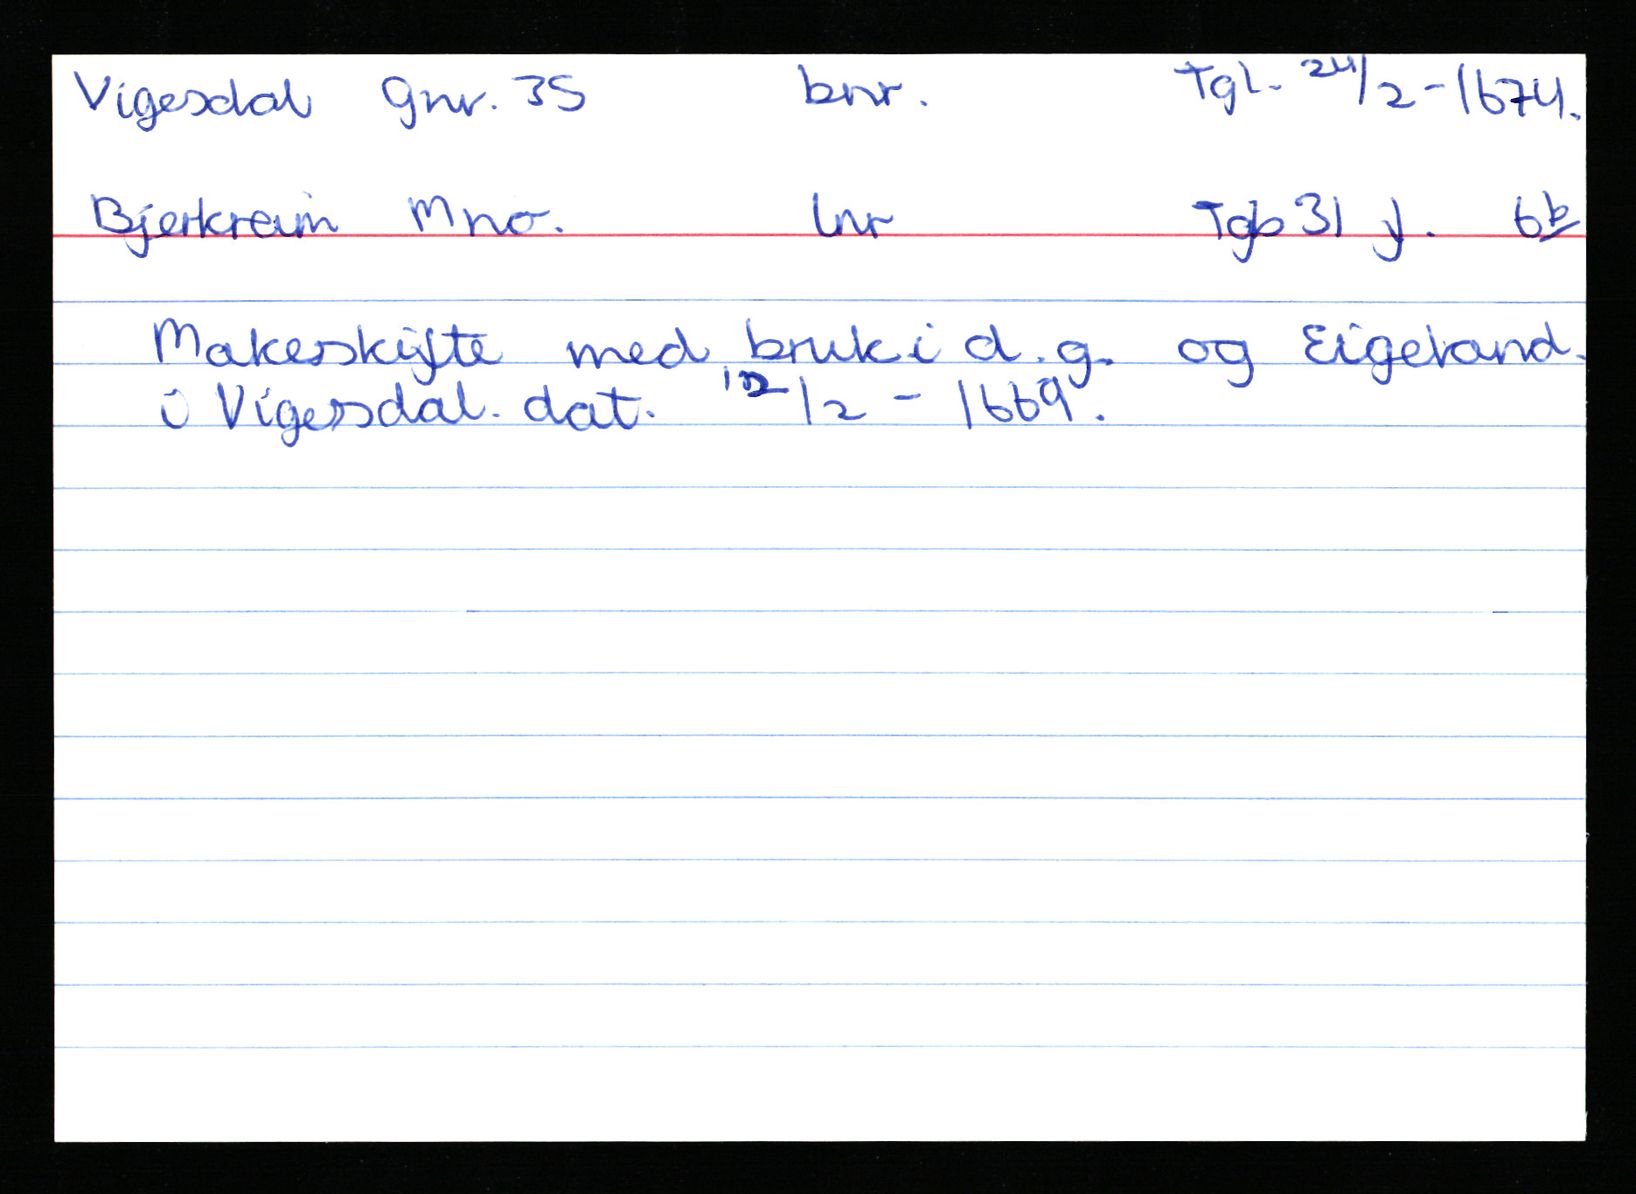 Vigesdal Gnr. 35 bnr. Tgl. 24/2-1674.
Bjerkreim Mno. lnr Tgb 31 f. 6b
Makeskifte med bruk i d.g. og Eigeland.
i Vigesdal. dat. 12/2 - 1669.